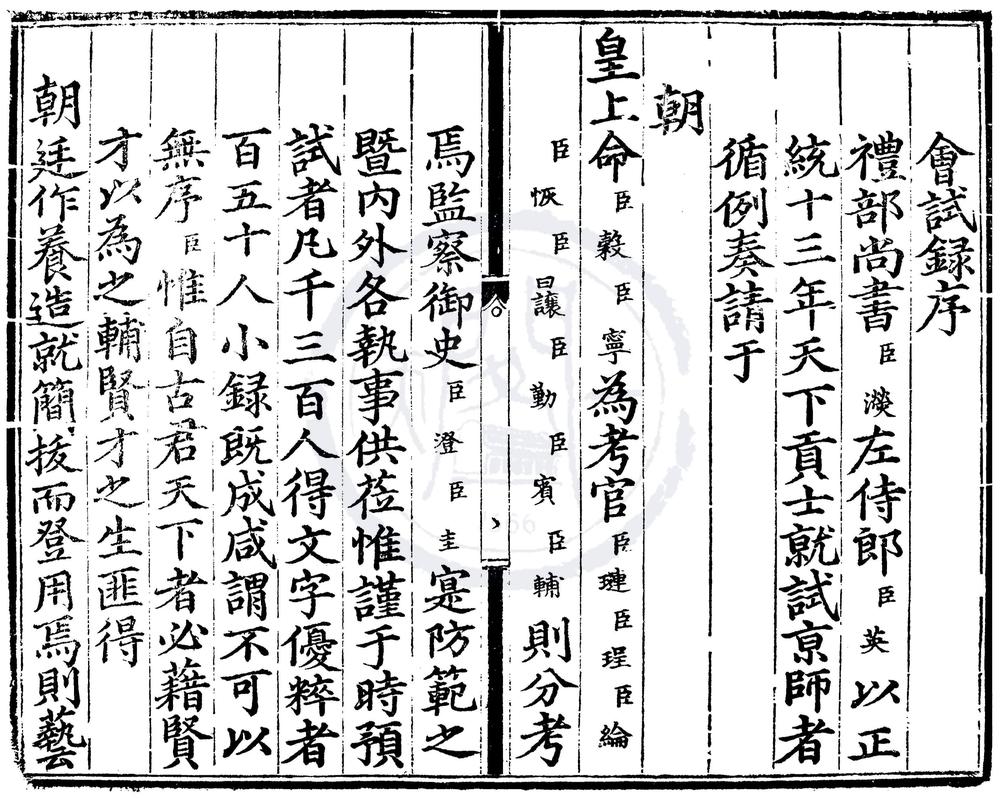 會試録序
禮部尚書臣濙左侍郎臣英以正
統十三年天下貢士就試京師者
循例奏請于
朝
皇上命臣穀臣寧為考官臣璉臣珵臣綸
臣恢臣讓臣勤臣賓臣輔則分考
焉監察御史臣澄臣圭寔防範之
暨內外各執事供莅惟謹于時預
試者凡千三百人得文字優粹者
百五十人小録既成咸謂不可以
無序臣惟自古君天下者必藉賢
才以為之輔賢才之生匪得
朝廷作養造就簡拔而登用焉則藝